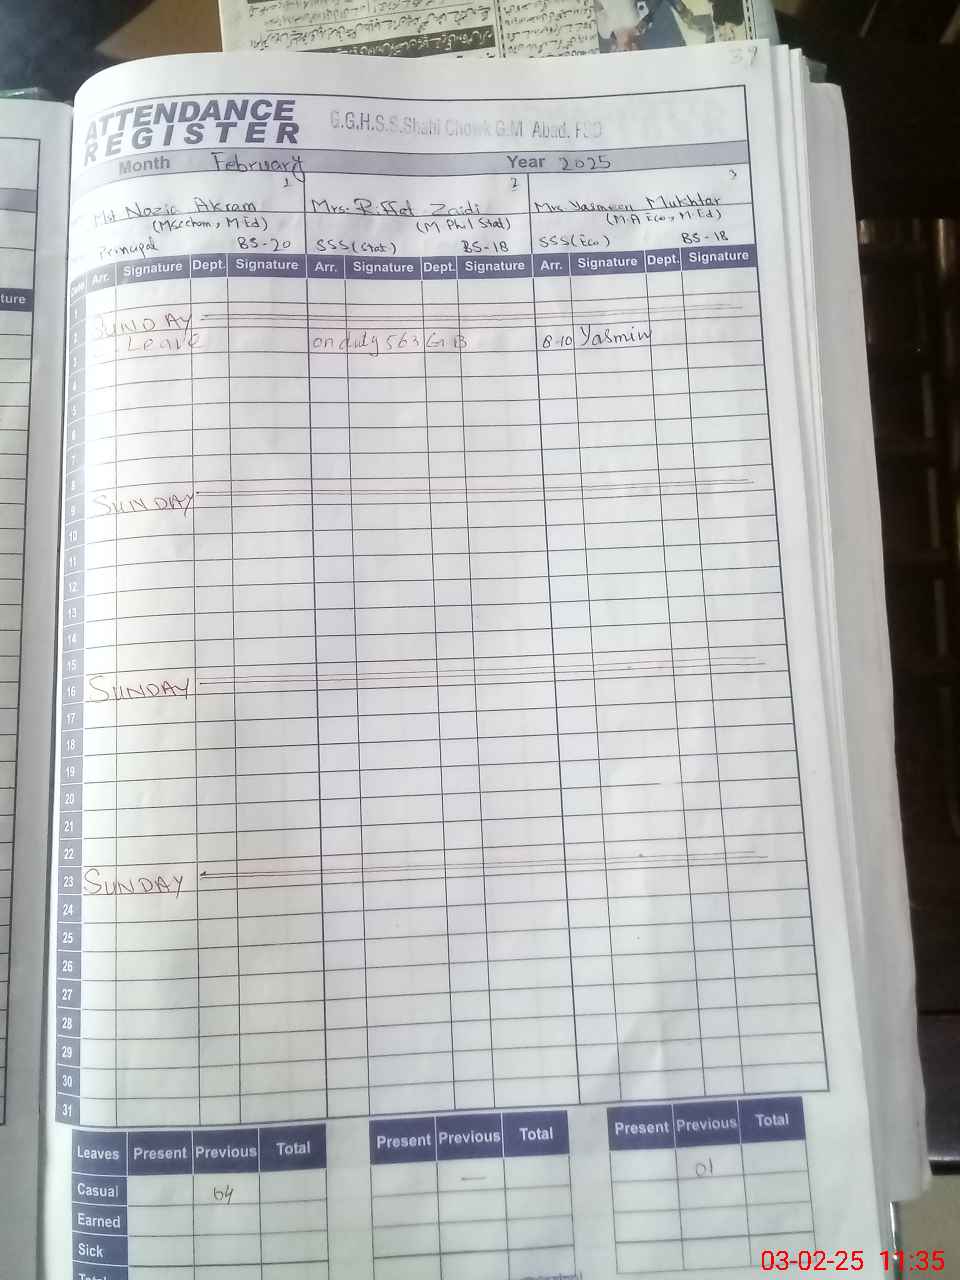 39
ATTENDANCE
REGISTER
G.G.H.S.S.Shahi Chowk G.M Abad. FSD
Month February Year 2025
1 2 3
Mst Nazia Akram Mrs. Riffat Zaidi Mrs. Yasmeen Mukhtar
(MSc chem, M.Ed) (M Phil Stat) (M.A Eco, M.Ed)
Principal BS-20 SSS(Stat) BS-18 SSS(Eco) BS-18
Date Arr. Signature Dept. Signature Arr. Signature Dept. Signature Arr. Signature Dept. Signature
ture
1
2 SUNDAY
3 Leave on duty 563 GB 8-10 Yasmin
4
5
6
7
8
9 SUNDAY
10
11
12
13
14
15
16 SUNDAY
17
18
19
20
21
22
23 SUNDAY
24
25
26
27
28
29
30
31
Leaves Present Previous Total Present Previous Total Present Previous Total
Casual 04 — 01
Earned
Sick
Total
03-02-25 11:35